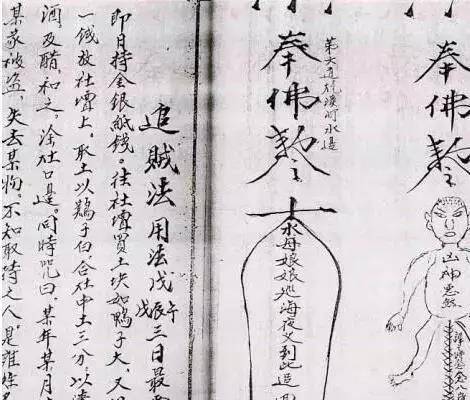 奉佛敕
山神惡煞
奉佛敕
水母娘娘巡海夜叉到此追
河水邊
追賊法 用法戊辰戊午三日最
即日持金銀紙錢。往社壇買土块如鴨子大,又
放社壇上。取土以鷄子白,合社中土三分。以
酒及醋,和之。塗社口邊。同時咒曰。某年某月
某家被盗,失去某物,不知取持之人,是誰